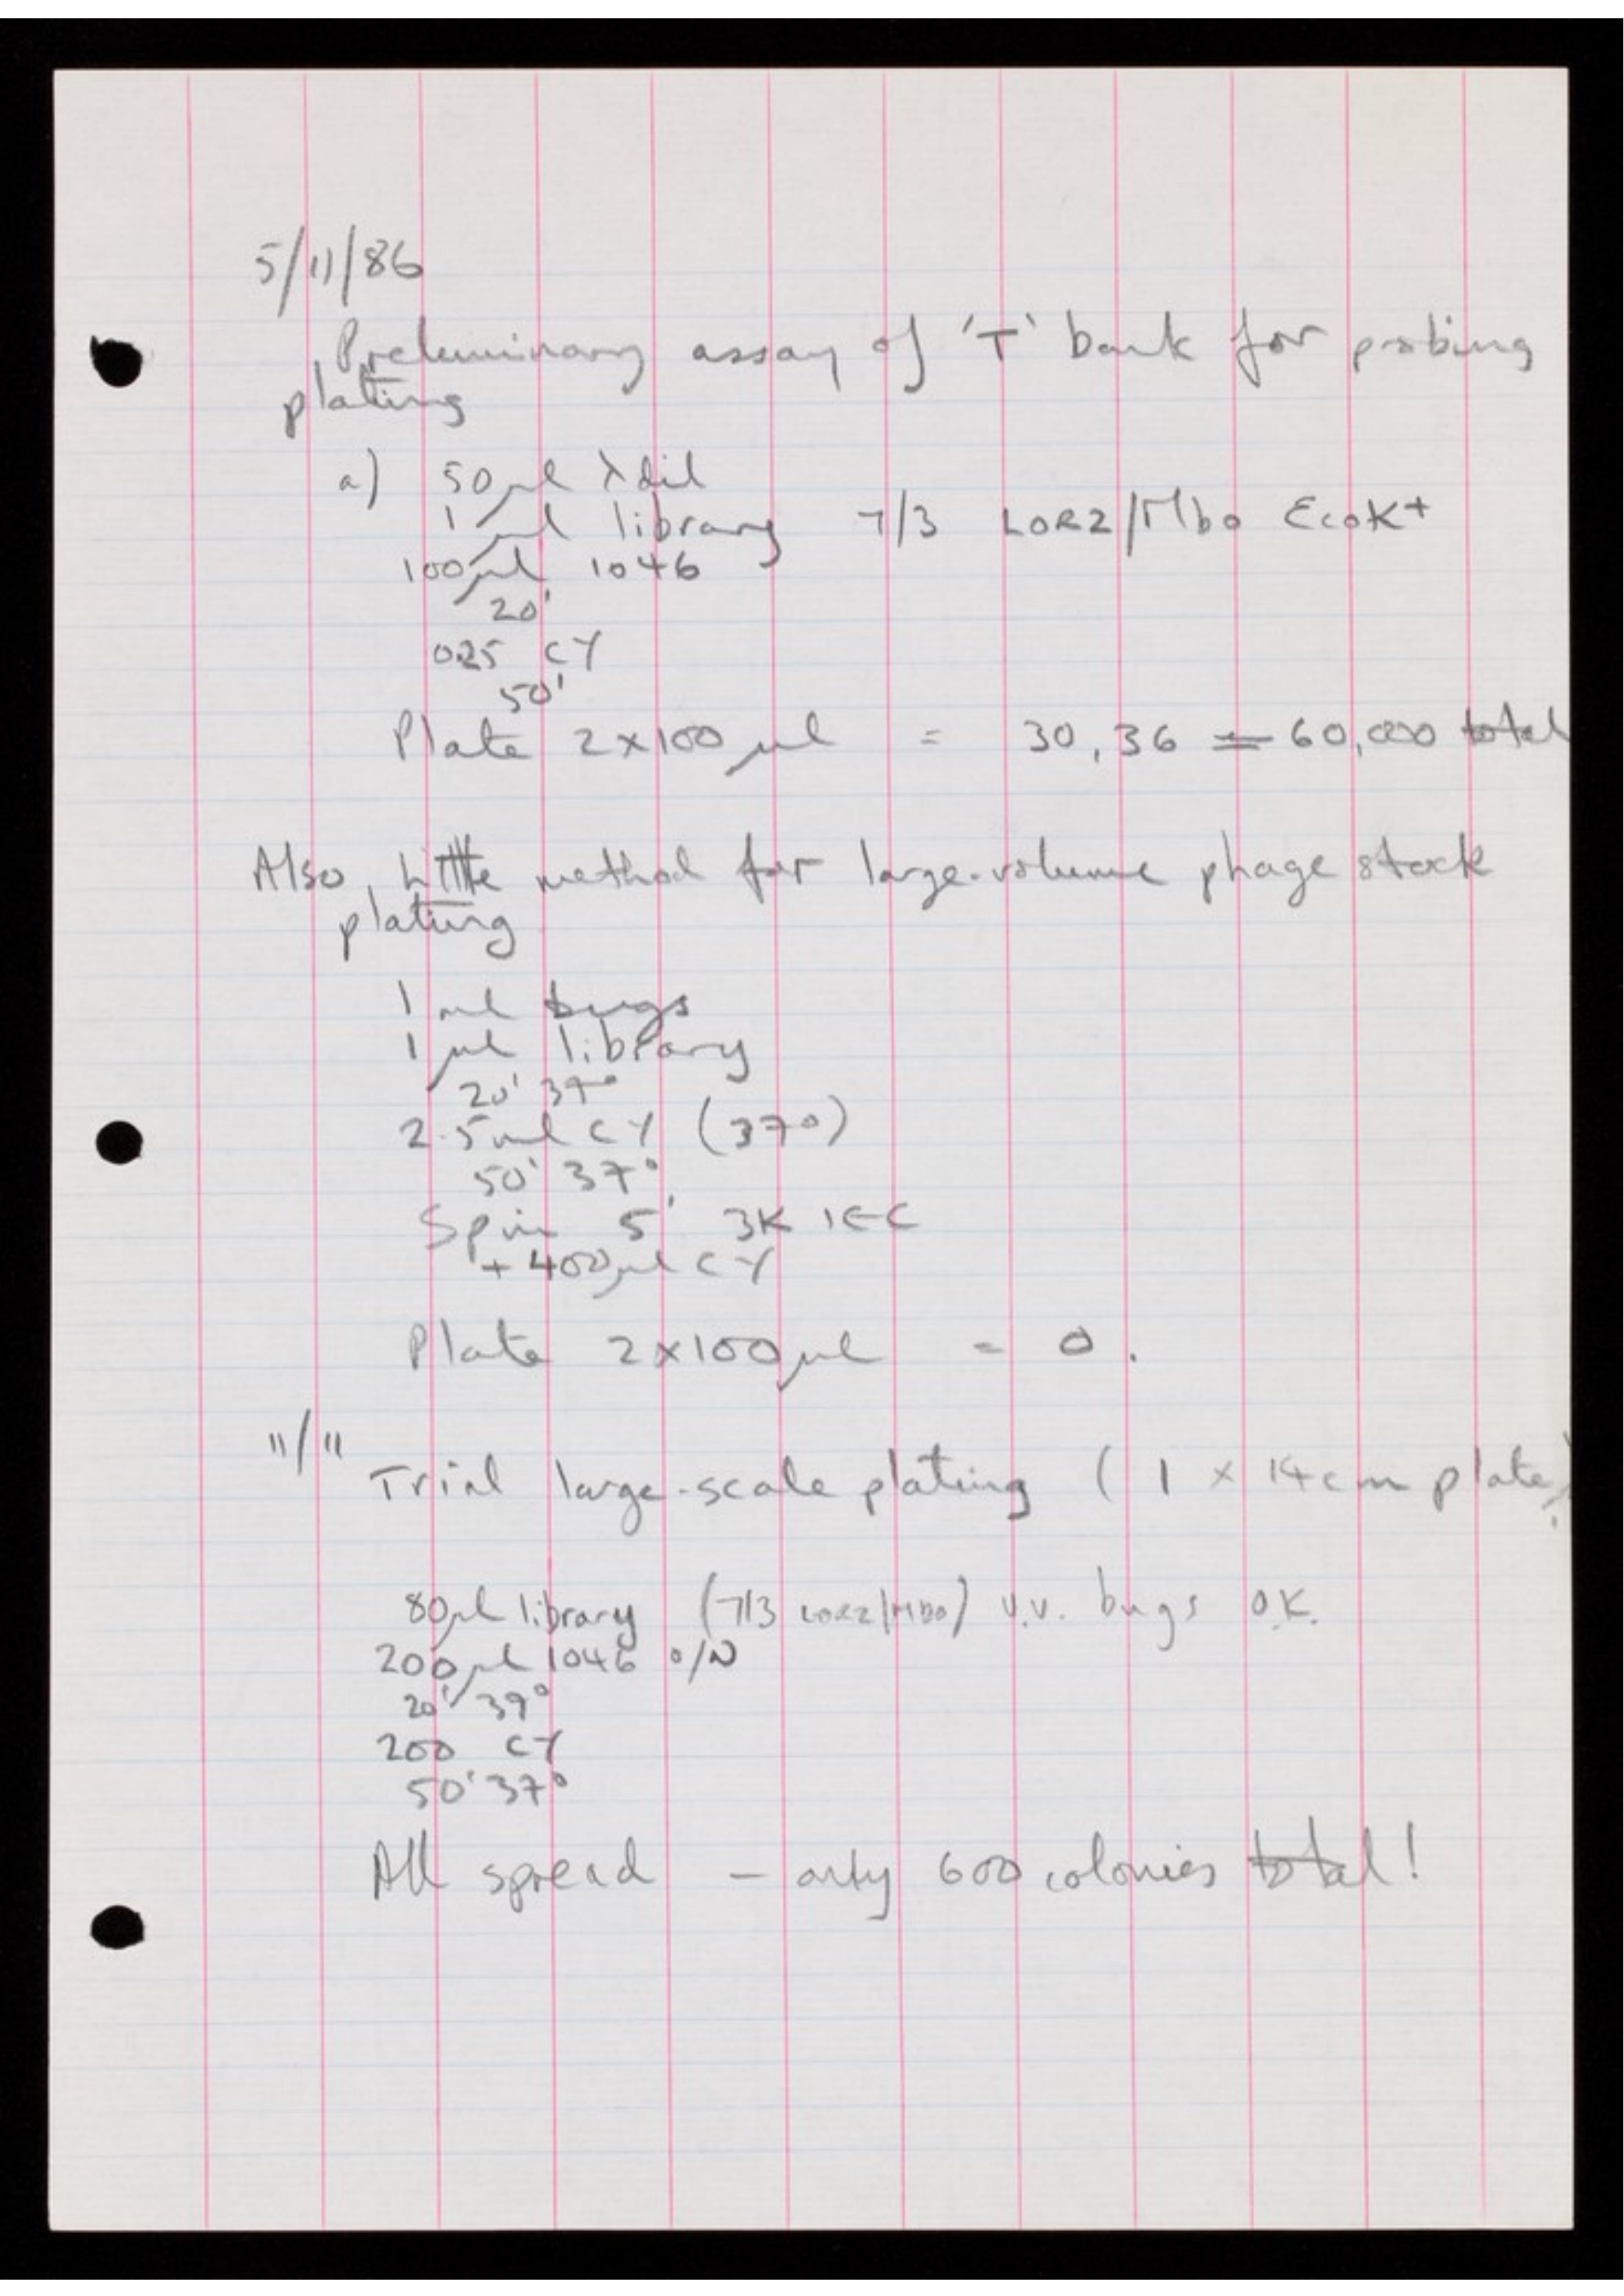 5/11/86
Preliminary assay of 'T' bank for probing
plating
a) 50µl λdil
1µl library 7/3 LOR2/Mbo EcoK+
100µl 1046
20'
0.25 CY
50'
Plate 2x100µl = 30, 36 = 60,000 total
Also, Little method for large-volume phage stock
plating
1 ml bugs
1 µl library
20' 37°
2.5ml CY (37°)
50' 37°
Spin 5' 3K IEC
+ 400µl CY
Plate 2x100µl = 0.
11/11
Trial large-scale plating (1 x 14cm plate)
80µl library (7/3 LOR2/Mbo) v.v. bugs O.K.
200µl 1046 o/N
20' 39°
200 CY
50' 37°
All spread - only 600 colonies total!